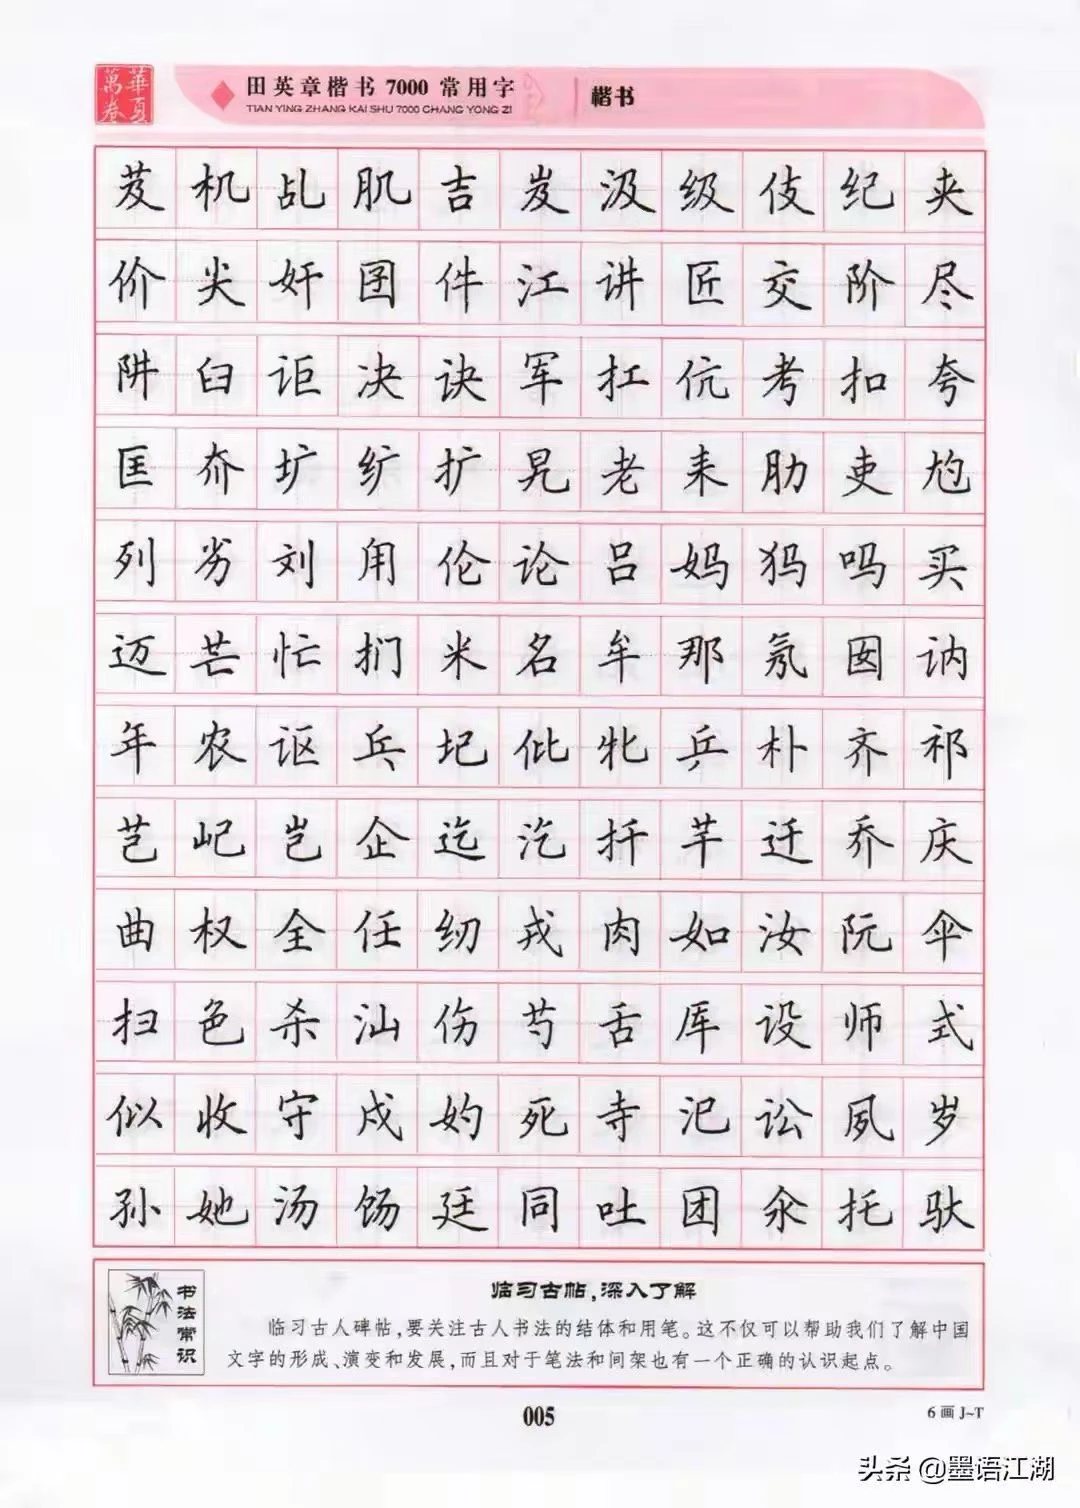 萬卷
華夏
田英章楷书 7000 常用字
TIAN YING ZHANG KAI SHU 7000 CHANG YONG ZI
楷书
芨 机 乩 肌 吉 岌 汲 级 伎 纪 夹
价 尖 奸 囝 件 江 讲 匠 交 阶 尽
阱 臼 讵 决 诀 军 扛 伉 考 扣 夸
匡 夼 圹 纩 扩 旯 老 耒 肋 吏 尥
列 劣 刘 甪 伦 论 吕 妈 犸 吗 买
迈 芒 忙 扪 米 名 牟 那 氖 囡 讷
年 农 讴 乓 圮 仳 牝 乒 朴 齐 祁
芑 屺 岂 企 迄 汔 扦 芊 迁 乔 庆
曲 权 全 任 纫 戎 肉 如 汝 阮 伞
扫 色 杀 汕 伤 芍 舌 厍 设 师 式
似 收 守 戍 妁 死 寺 汜 讼 夙 岁
孙 她 汤 饧 廷 同 吐 团 氽 托 驮
书法常识
临习古帖,深入了解
临习古人碑帖,要关注古人书法的结体和用笔。这不仅可以帮助我们了解中国
文字的形成、演变和发展,而且对于笔法和间架也有一个正确的认识起点。
005
6 画 J~T
头条 @墨语江湖